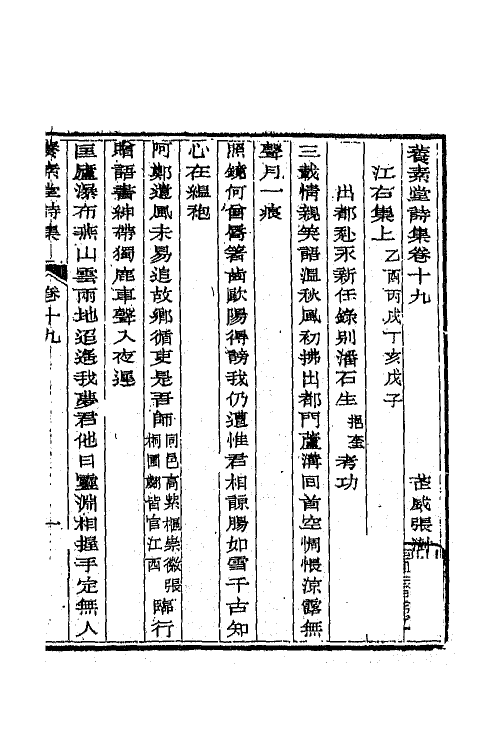 養素堂詩集卷十九
武威張澍
江右集上乙酉丙戌丁亥戊子
出都赴永新任錄别潘石生挹奎考功
三載情親笑語溫秋風初拂出都門蘆溝回首空惆悵涼露無
聲月一痕
照鏡何曾唇著齒歐陽得謗我仍遭惟君相諒腸如雪千古知
心在緼袍
阿鄭遺風未易追故鄉循吏是吾師同邑高紫樞崇徽張桐圃鄰皆官江西臨行
贈語書紳帶獨鹿車聲入夜遲
匡廬瀑布燕山雲兩地迢遙我夢君他日靈淵相握手定無人
養素堂詩集
卷十九
一